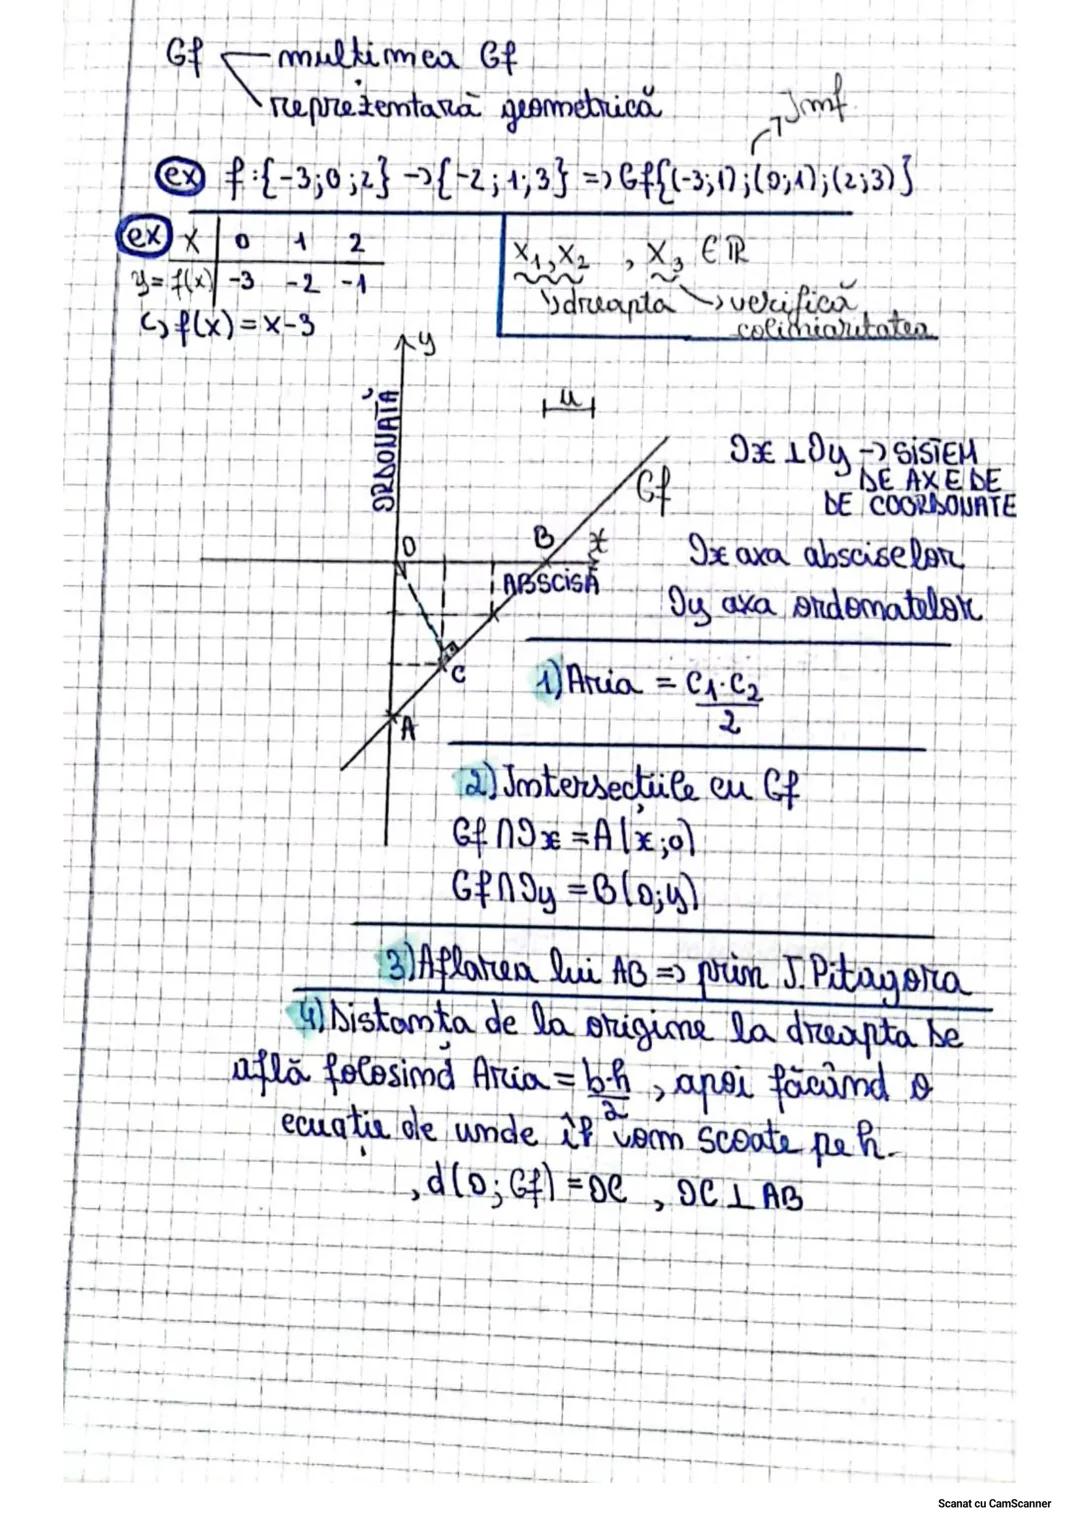 Gf multimea Gf
reprezentară geometrică
Jmf
ex f:{-3;0;2} -> {-2;1;3} => Gf{(-3;1);(0;1);(2;3)}
ex x 0 1 2
y=f(x) -3 -2 -1
f(x)=x-3
x₁,x₂ , x₃ ∈ ℝ
dreapta verifică
coliniaritatea
y
ORDONATĂ
u
Gf
Ox ⊥ Oy -> SISTEM
DE AXE DE
DE COORDONATE
O
B
x
ABSCISĂ
Ox axa absciselor
Oy axa ordonatelor
C
A
1) Aria = C₁·C₂/2
2) Intersecțiile cu Gf
Gf ∩ Ox = A(x;0)
Gf ∩ Oy = B(0;y)
3) Aflarea lui AB => prin T.Pitagora
4) Distanța de la origine la dreapta se
află folosind Aria = b·h/2, apoi făcând o
ecuație de unde îl vom scoate pe h.
, d(O;Gf) = OC , OC ⊥ AB
Scanat cu CamScanner